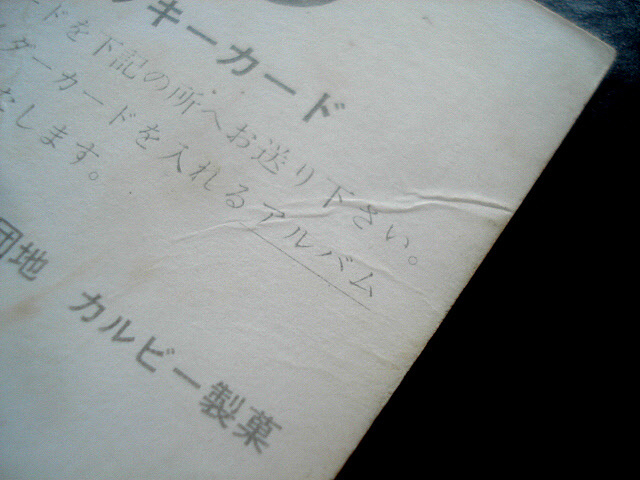 ッキーカード
ードを下記の所へお送り下さい。
ダーカードを入れるアルバム
します。
団地 カルビー製菓